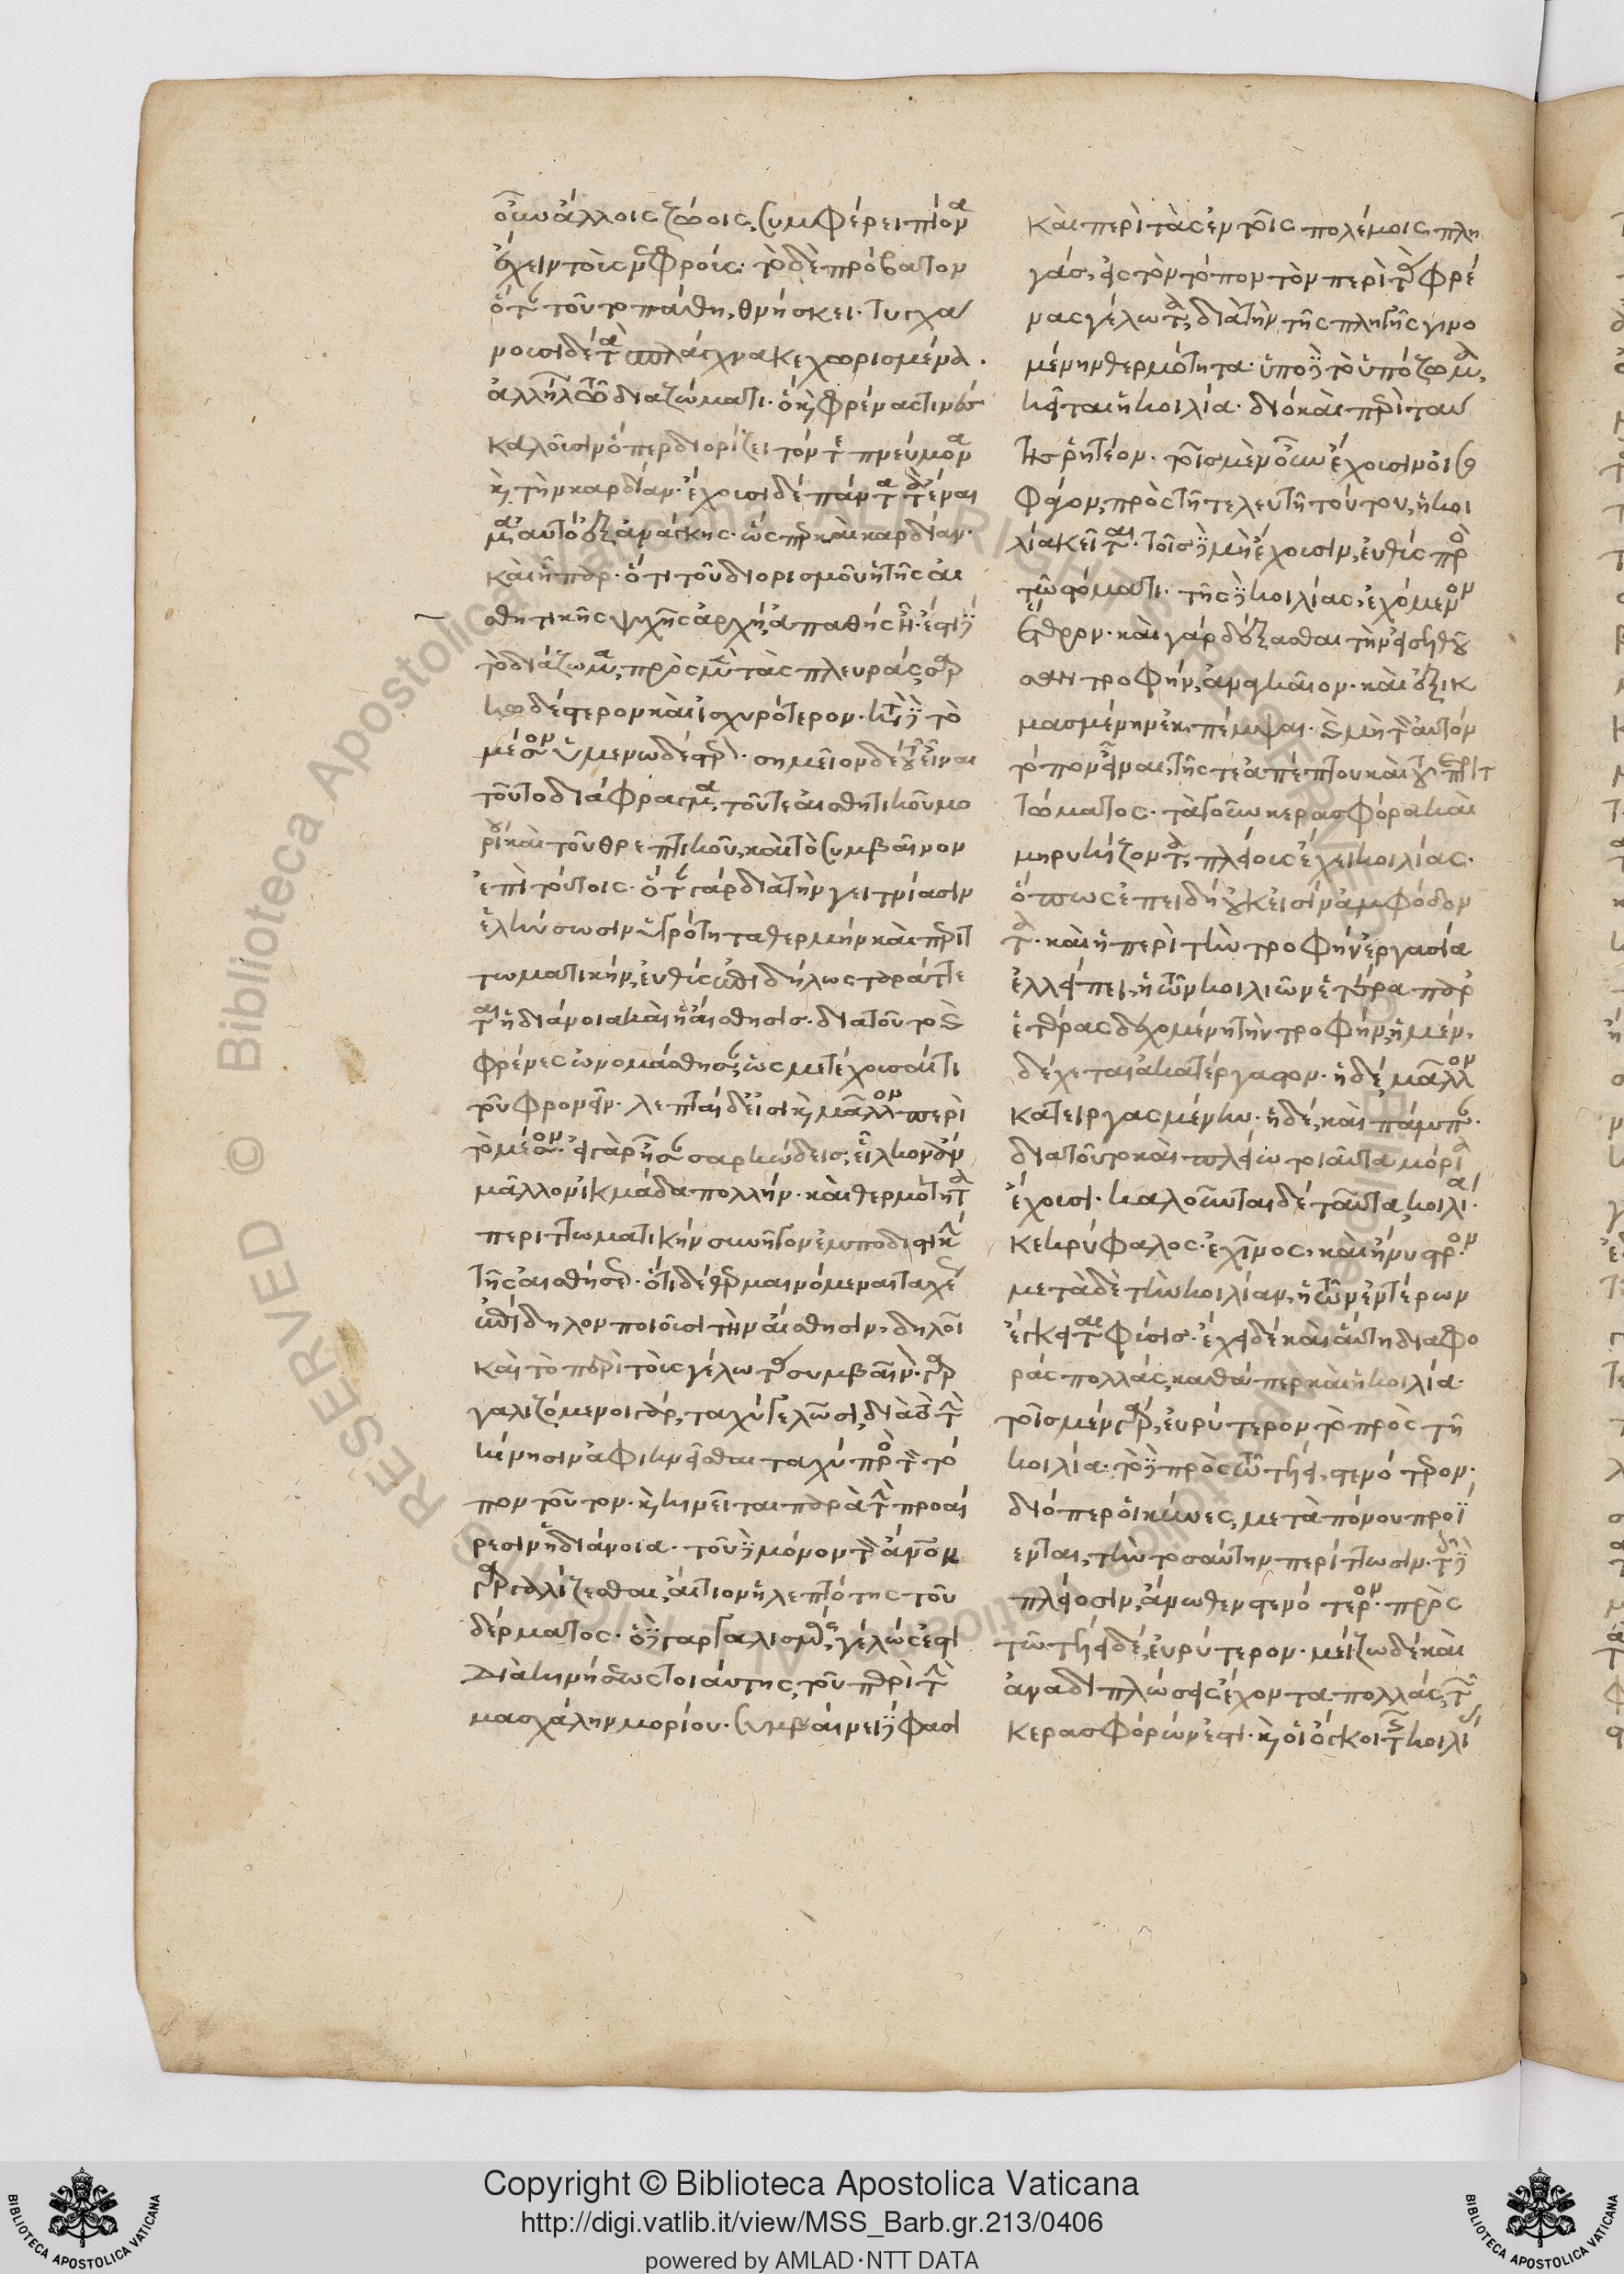 οὖν ἄλλοις ζώοις, συμφέρει πίονα
ἔχειν τοὺς νεφρούς· τὸ δὲ πρόβατον
ὅταν τοῦτο πάθη, θνήσκει· Τυγχά
νουσι δὲ τὰ σπλάγχνα κεχωρισμένα·
ἀλλήλων τῶ διαζώματι· ὃ καὶ φρένας τινὲς
καλοῦσιν ὅπερ διορίζει τόν τε πνεύμονα
καὶ τὴν καρδίαν· ἔχουσι δὲ πάντα τὰ ἔναι
μα, αὐτὸ ἐξ ἀνάγκης· ὥσπερ καὶ καρδίαν·
καὶ ἧπαρ· ὅτι τοῦ διορισμοῦ ἡ τῆς αἰ
σθητικῆς ψυχῆς ἀρχὴ, ἀπαθὴς ἦ· ἔστι δὲ
τὸ διάζωμα, πρὸς μὲν τὰς πλευρὰς, σαρ
κωδέστερον καὶ ἰσχυρότερον· κατὰ δὲ τὸ
μέσον ὑμενωδέστερον· σημεῖον δὲ τοῦ εἶναι
τοῦτο διάφραγμα, τοῦ τε αἰσθητικοῦ μο
ρίου καὶ τοῦ θρεπτικοῦ, καὶ τὸ συμβαῖνον
ἐπὶ τούτοις· ὅταν γὰρ διὰ τὴν γειτνίασιν
ἑλκύσωσιν ὑγρότητα θερμὴν καὶ περιτ
τωματικὴν, εὐθὺς ἐπιδήλως ταράττε
ται ἡ διάνοια καὶ ἡ αἴσθησις· διὰ τοῦτο καὶ
φρένες ὠνομάσθησαν, ὡς μετέχουσαί τι
τοῦ φρονεῖν· λεπταὶ δέ εἰσι καὶ μᾶλλον περὶ
τὸ μέσον· εἰ γὰρ ἦσαν σαρκώδεις, εἷλκον ἂν
μᾶλλον ἰκμάδα πολλὴν· καὶ θερμότητα
περιττωματικὴν συνῆγον ἐμποδιστικὴν
τῆς αἰσθήσεως· ὅτι δὲ θερμαινόμεναι ταχέως
ἐπίδηλον ποιοῦσι τὴν αἴσθησιν, δηλοῖ
καὶ τὸ περὶ τοὺς γέλωτας συμβαῖνον· γαρ
γαλιζόμενοι γὰρ, ταχὺ γελῶσι, διὰ τὸ τὴν
κίνησιν ἀφικνεῖσθαι ταχὺ πρὸς τὸν τό
πον τοῦτον· καὶ κινεῖται παρὰ τὴν προαί
ρεσιν ἡ διάνοια· τοῦ δὲ μόνον τὸν ἄνθρωπον
γαργαλίζεσθαι, αἴτιον ἡ λεπτότης τοῦ
δέρματος· ὁ δὲ γαργαλισμὸς, γέλως ἐστὶ
διὰ κινήσεως τοιαύτης, τοῦ περὶ τὴν
μασχάλην μορίου· Συμβαίνει δὲ φασὶ
καὶ περὶ τὰς ἐν τοῖς πολέμοις πλη
γάς, εἰς τὸν τόπον τὸν περὶ τὰς φρέ
νας γέλωτα, διὰ τὴν τῆς πληγῆς γινο
μένην θερμότητα· ὑπὸ δὲ τὸ ὑπόζωμα,
κεῖται ἡ κοιλία· διὸ καὶ περὶ ταύ
της ῥητέον· τοῖς μὲν οὖν ἔχουσιν οἰσο
φάγον, πρὸς τῆ τελευτῆ τούτου, ἡ κοι
λία κεῖται· τοῖς δὲ μὴ ἔχουσιν, εὐθὺς πρὸς
τῶ στόματι· τῆς δὲ κοιλίας, ἐχόμενον
ἔντερον· καὶ γὰρ δέξασθαι τὴν εἰσελθοῦ
σαν τροφὴν, ἀναγκαῖον· καὶ ἐξικ
μασμένην ἐκπέμψαι· καὶ μὴ τὸν αὐτὸν
τόπον εἶναι, τῆς τε ἀπέπτου καὶ τοῦ περιτ
τώματος· τὰ γοῦν κερασφόρα καὶ
μηρυκίζοντα, πλείους ἔχει κοιλίας·
ὅπως ἐπειδὴ οὐκ εἰσὶν ἀμφόδον
τα· καὶ ἡ περὶ τὴν τροφὴν ἐργασία
ἐλλείπει, ἡ τῶν κοιλιῶν ἑτέρα παρ
ἑτέρας δεχομένη τὴν τροφὴν, ἡ μὲν,
δέχεται ἀκατέργαστον· ἡ δὲ μᾶλλον
κατειργασμένην· ἡ δὲ, καὶ πάμπαν·
διὰ τοῦτο καὶ πλείω τοιαῦτα μόρια
ἔχουσι· καλοῦνται δὲ ταῦτα, κοιλία·
κεκρύφαλος· ἐχῖνος· καὶ ἤνυστρον·
μετὰ δὲ τὴν κοιλίαν, ἡ τῶν ἐντέρων
ἔγκειται φύσις· ἔχει δὲ καὶ αὕτη διαφο
ρὰς πολλὰς, καθάπερ καὶ ἡ κοιλία·
τοῖς μὲν γὰρ, εὐρύτερον τὸ πρὸς τῆ
κοιλία· τὸ δὲ πρὸς τῶ τέλει, στενότερον·
διόπερ οἱ κύνες, μετὰ πόνου προΐ
ενται, τὴν τοσαύτην περίττωσιν· τοῖς δὲ
πλείοσιν, ἄνωθεν στενότερον· πρὸς
τῶ τέλει δὲ, εὐρύτερον· μείζω δὲ καὶ
ἀναδιπλώσεις ἔχοντα πολλὰς, τῶν
κερασφόρων ἐστί· καὶ οἱ ὄγκοι τῆς κοιλί
Copyright © Biblioteca Apostolica Vaticana
http://digi.vatlib.it/view/MSS_Barb.gr.213/0406
powered by AMLAD·NTT DATA
BIBLIOTECA APOSTOLICA VATICANA
BIBLIOTECA APOSTOLICA VATICANA